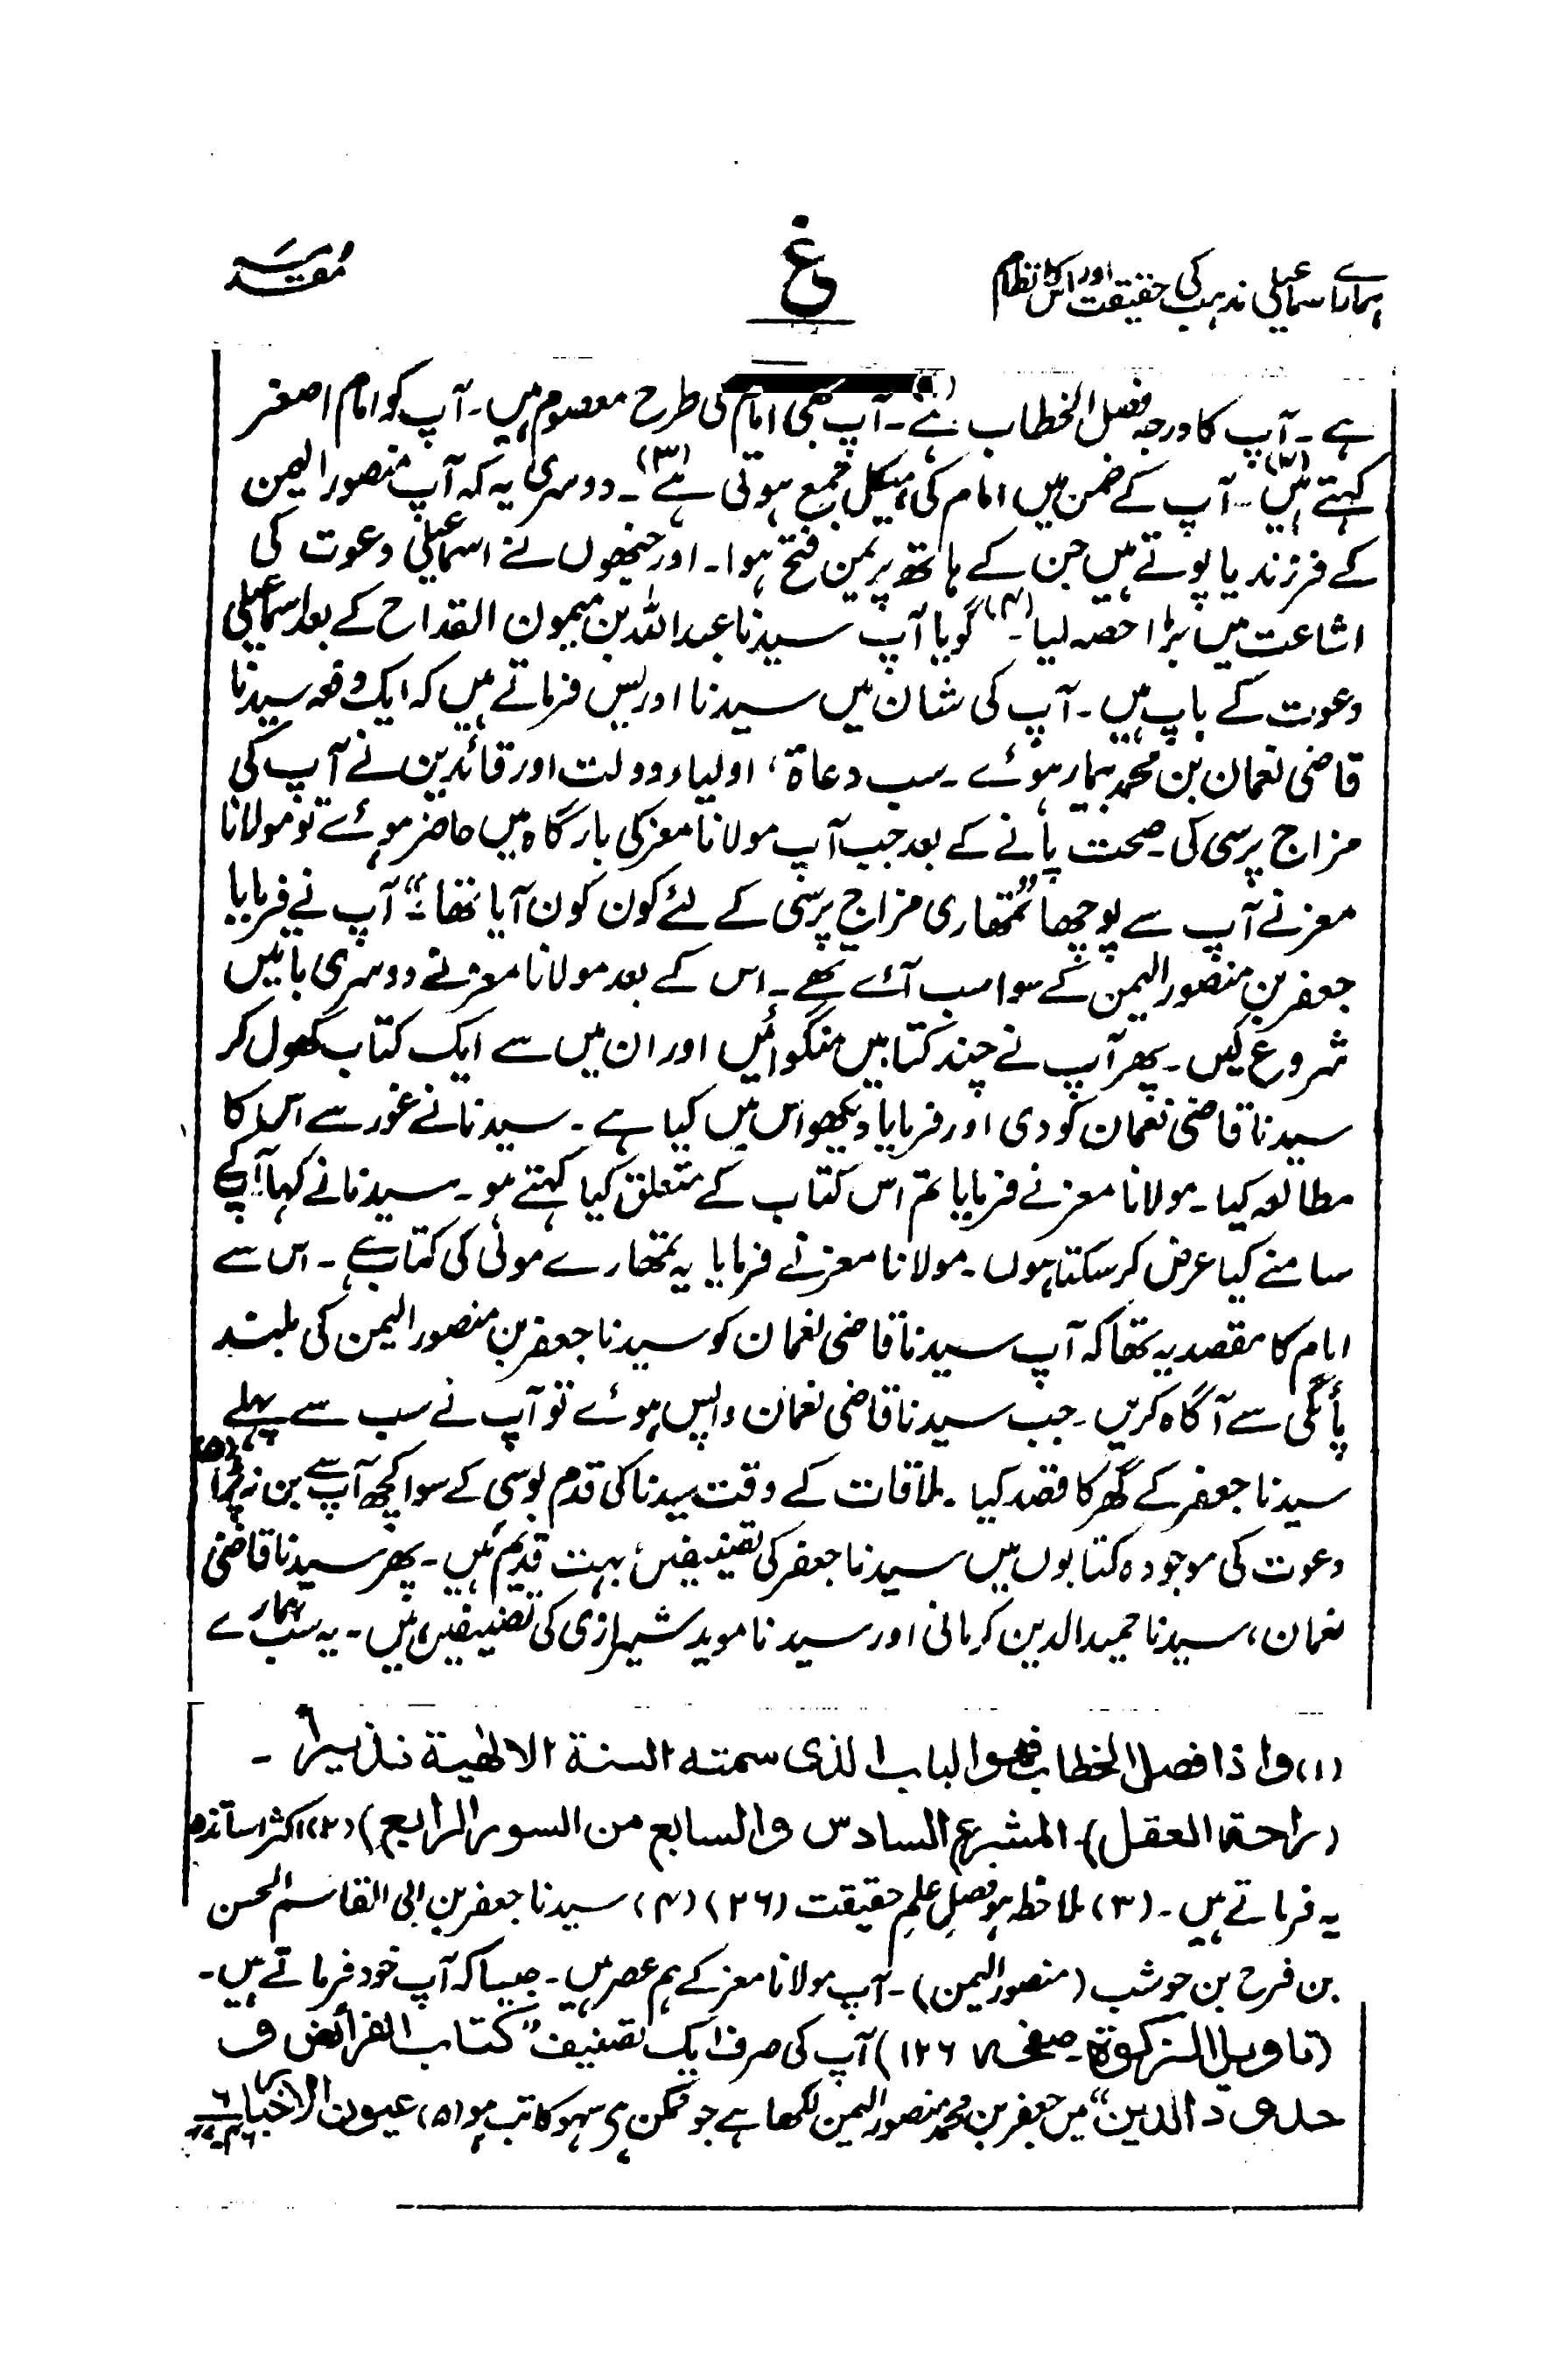 ہمارے اسماعیلی مذہب کی حقیقت اور اس کا نظام
غ
مقدمہ
ہے ۔ آپ کا درجہ فصل الخطاب ہے (۱)۔ آپ بھی امام کی طرح معصوم ہیں ۔ آپ کو امام اصغر
کہتے ہیں (۲)۔ آپ کے ضمن میں امام کی ہیکل جمع ہوتی ہے (۳)۔ دوسری یہ کہ آپ منصور الیمن
کے فرزند یا پوتے ہیں جن کے ہاتھ پر یمن فتح ہوا ۔ اور جنھوں نے اسماعیلی دعوت کی
اشاعت میں بڑا حصہ لیا (۴)۔ گویا آپ سیدنا عبداللہ بن میمون القداح کے بعد اسماعیلی
دعوت کے باپ ہیں ۔ آپ کی شان میں سیدنا ادریس فرماتے ہیں کہ ایک دفعہ سیدنا
قاضی نعمان بن محمد بیمار ہوئے ۔ سب دعاۃ ، اولیاء دولت اور قائدین نے آپ کی
مزاج پرسی کی ۔ صحت پانے کے بعد جب آپ مولانا معز کی بارگاہ میں حاضر ہوئے تو مولانا
معز نے آپ سے پوچھا ”تمھاری مزاج پرسی کے لئے کون کون آیا تھا ؟“ آپ نے فرمایا
جعفر بن منصور الیمن کے سوا سب آئے تھے ۔ اس کے بعد مولانا معز نے دوسری باتیں
شروع کیں ۔ پھر آپ نے چند کتابیں منگوائیں اور ان میں سے ایک کتاب کھول کر
سیدنا قاضی نعمان کو دی اور فرمایا دیکھو اس میں کیا ہے ۔ سیدنا نے غور سے اس کا
مطالعہ کیا ۔ مولانا معز نے فرمایا تم اس کتاب کے متعلق کیا کہتے ہو ۔ سیدنا نے کہا آپ کے
سامنے کیا عرض کر سکتا ہوں ۔ مولانا معز نے فرمایا یہ تمھارے مولیٰ کی کتاب ہے ۔ اس سے
امام کا مقصد یہ تھا کہ آپ سیدنا قاضی نعمان کو سیدنا جعفر بن منصور الیمن کی بلند
پائگی سے آگاہ کریں ۔ جب سیدنا قاضی نعمان واپس ہوئے تو آپ نے سب سے پہلے
سیدنا جعفر کے گھر کا قصد کیا ۔ ملاقات کے وقت سیدنا کی قدم بوسی کے سوا کچھ آپ سے بن نہ پڑا (۵)
دعوت کی موجودہ کتابوں میں سیدنا جعفر کی تصنیفیں بہت قدیم ہیں ۔ پھر سیدنا قاضی
نعمان ، سیدنا حمید الدین کرمانی اور سیدنا موید شیرازی کی تصنیفیں ہیں ۔ یہ سب ہمارے
(۱) واذا فصل الخطاب فھو الباب الذی سمتہ السنۃ الالٰھیۃ نذیرا ۔
(راحۃ العقل)۔ المشرع السادس والسابع من السور الرابع) (۲) اکثر اساتذہ
یہ فرماتے ہیں ۔ (۳) ملاحظہ ہو فصل علم حقیقت (۲۶) (۴) سیدنا جعفر بن ابی القاسم الحسن
بن فرح بن حوشب (منصور الیمن) ۔ آپ مولانا معز کے ہم عصر ہیں ۔ جیسا کہ آپ خود فرماتے ہیں ۔
(تاویل الزکوۃ ۔ صفحہ ۱۲۶) آپ کی صرف ایک تصنیف ”کتاب الفرائض و
حدود الدین“ میں جعفر بن محمد منصور الیمن لکھا ہے جو ممکن ہی سہو کاتب ہو (۵) عیون الاخبار ۶